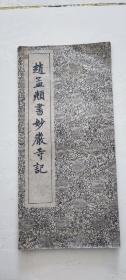 趙孟頫書妙嚴寺記